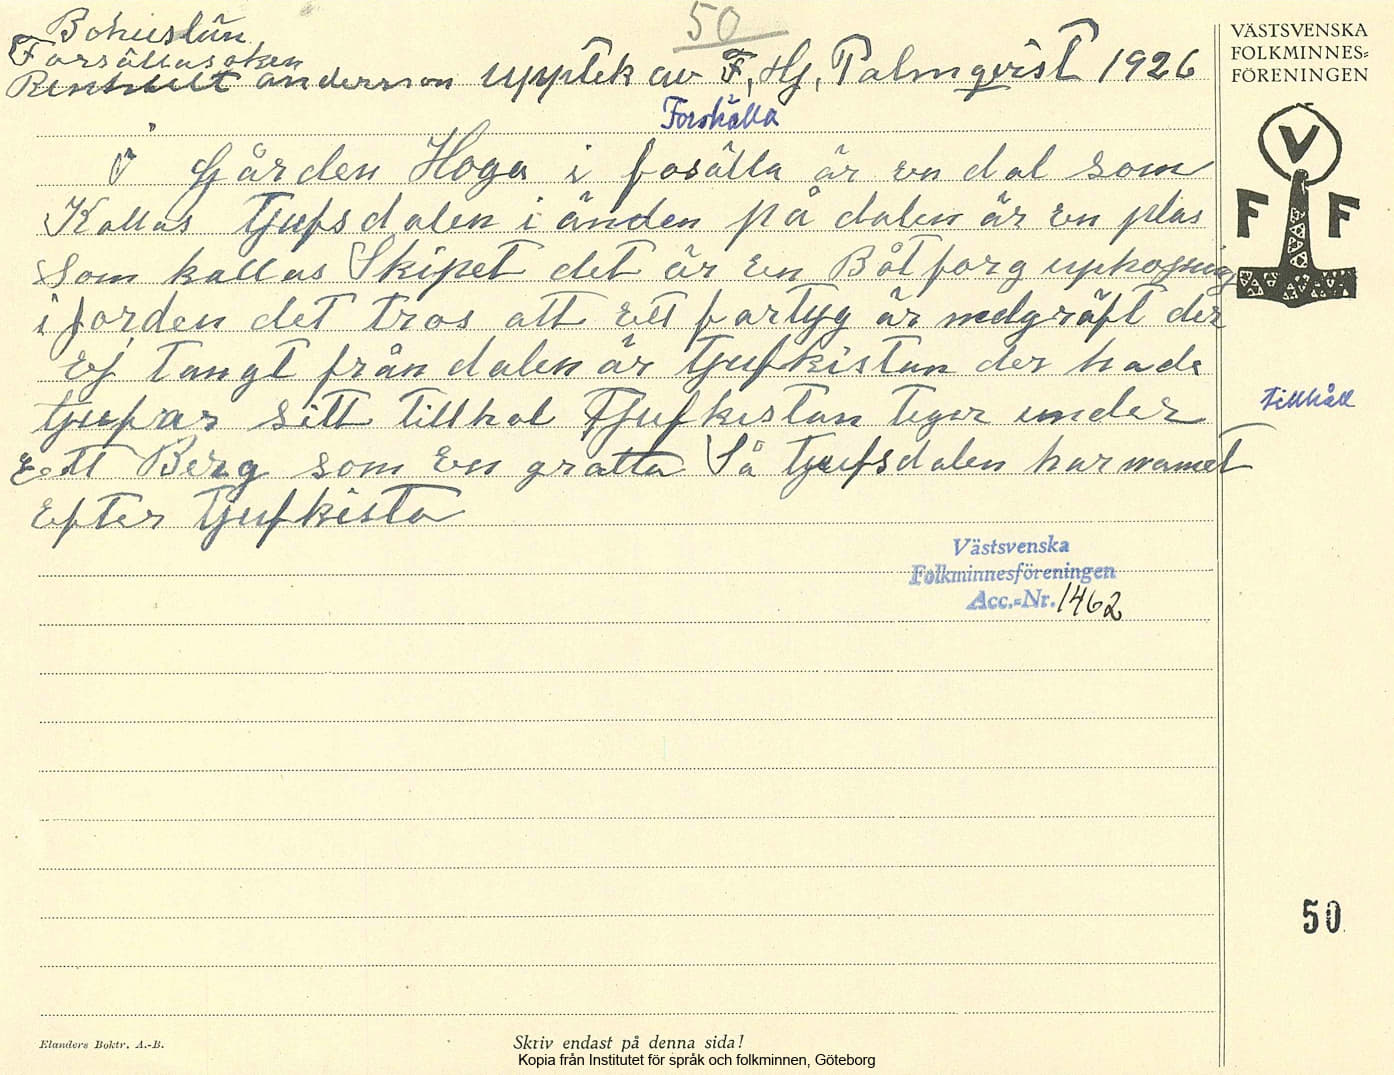 50
Bohuslän
Forsällasoken
anderson upptek av F, Hj, Palmqvist 1926
Forshälla
i Gården Hoga i fosälla är en dal som
Kallas tjufsdalen i änden på dalen är en plas
Som kallas Skipet det är en Båtforg uphogning
i jorden det tros att ett fartyg är nedgräft der
Ej langt från dalen är tjufkistan der hade
tjufvar sitt tillhol Tjufkistan liger under
Eett Berg som En grotta Så tjufsdalen har namet
Efter tjufkista
VÄSTSVENSKA
FOLKMINNES=
FÖRENINGEN
V
F F
tillhåll
Västsvenska
Folkminnesföreningen
Acc.=Nr. 1462
50
Elanders Boktr. A.-B.
Skriv endast på denna sida!
Kopia från Institutet för språk och folkminnen, Göteborg